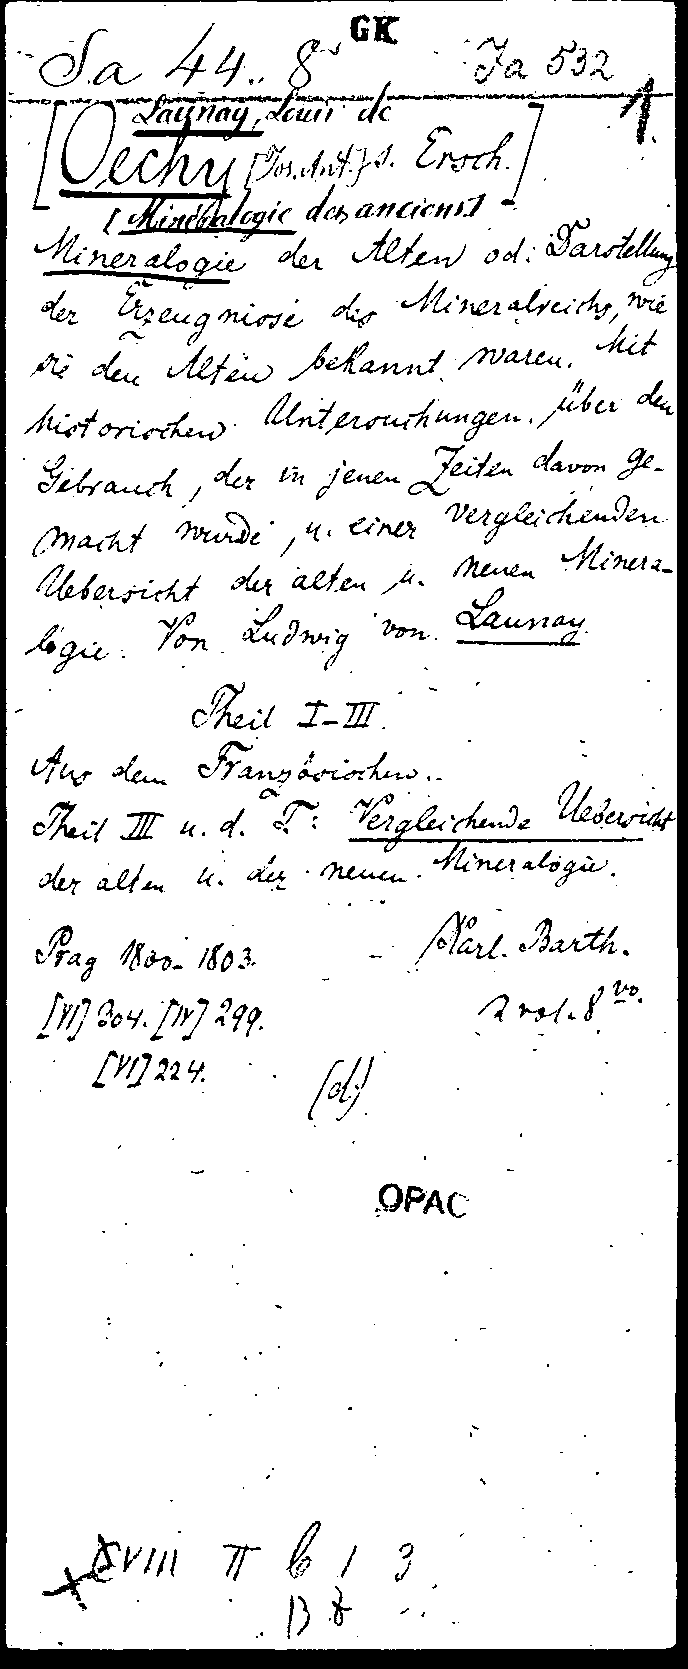 GK
Sa 44.. 8° Ja 532
Launay, Louis de 1.
[Oechy [Jos. Ant.] s. Ersch.]
[Minéralogie des anciens]
Mineralogie der Alten od: Darstellung
der Erzeugnisse des Mineralreichs, wie
sie den Alten bekannt waren. Mit
historischen Untersuchungen über den
Gebrauch, der in jenen Zeiten davon ge-
macht wurde, u. einer vergleichenden
Uebersicht der alten u. neuen Minera-
logie. Von Ludwig von Launay
Theil I-III.
Aus dem Französischen..
Theil III u. d. T.: Vergleichende Uebersicht
der alten u. der neuen Mineralogie.
Prag 1800-1803. - Karl Barth.
[VI] 304. [IV] 299. 2 vol. 8vo.
[VI] 224. (d.)
OPAC
XVIII π 6 1 3